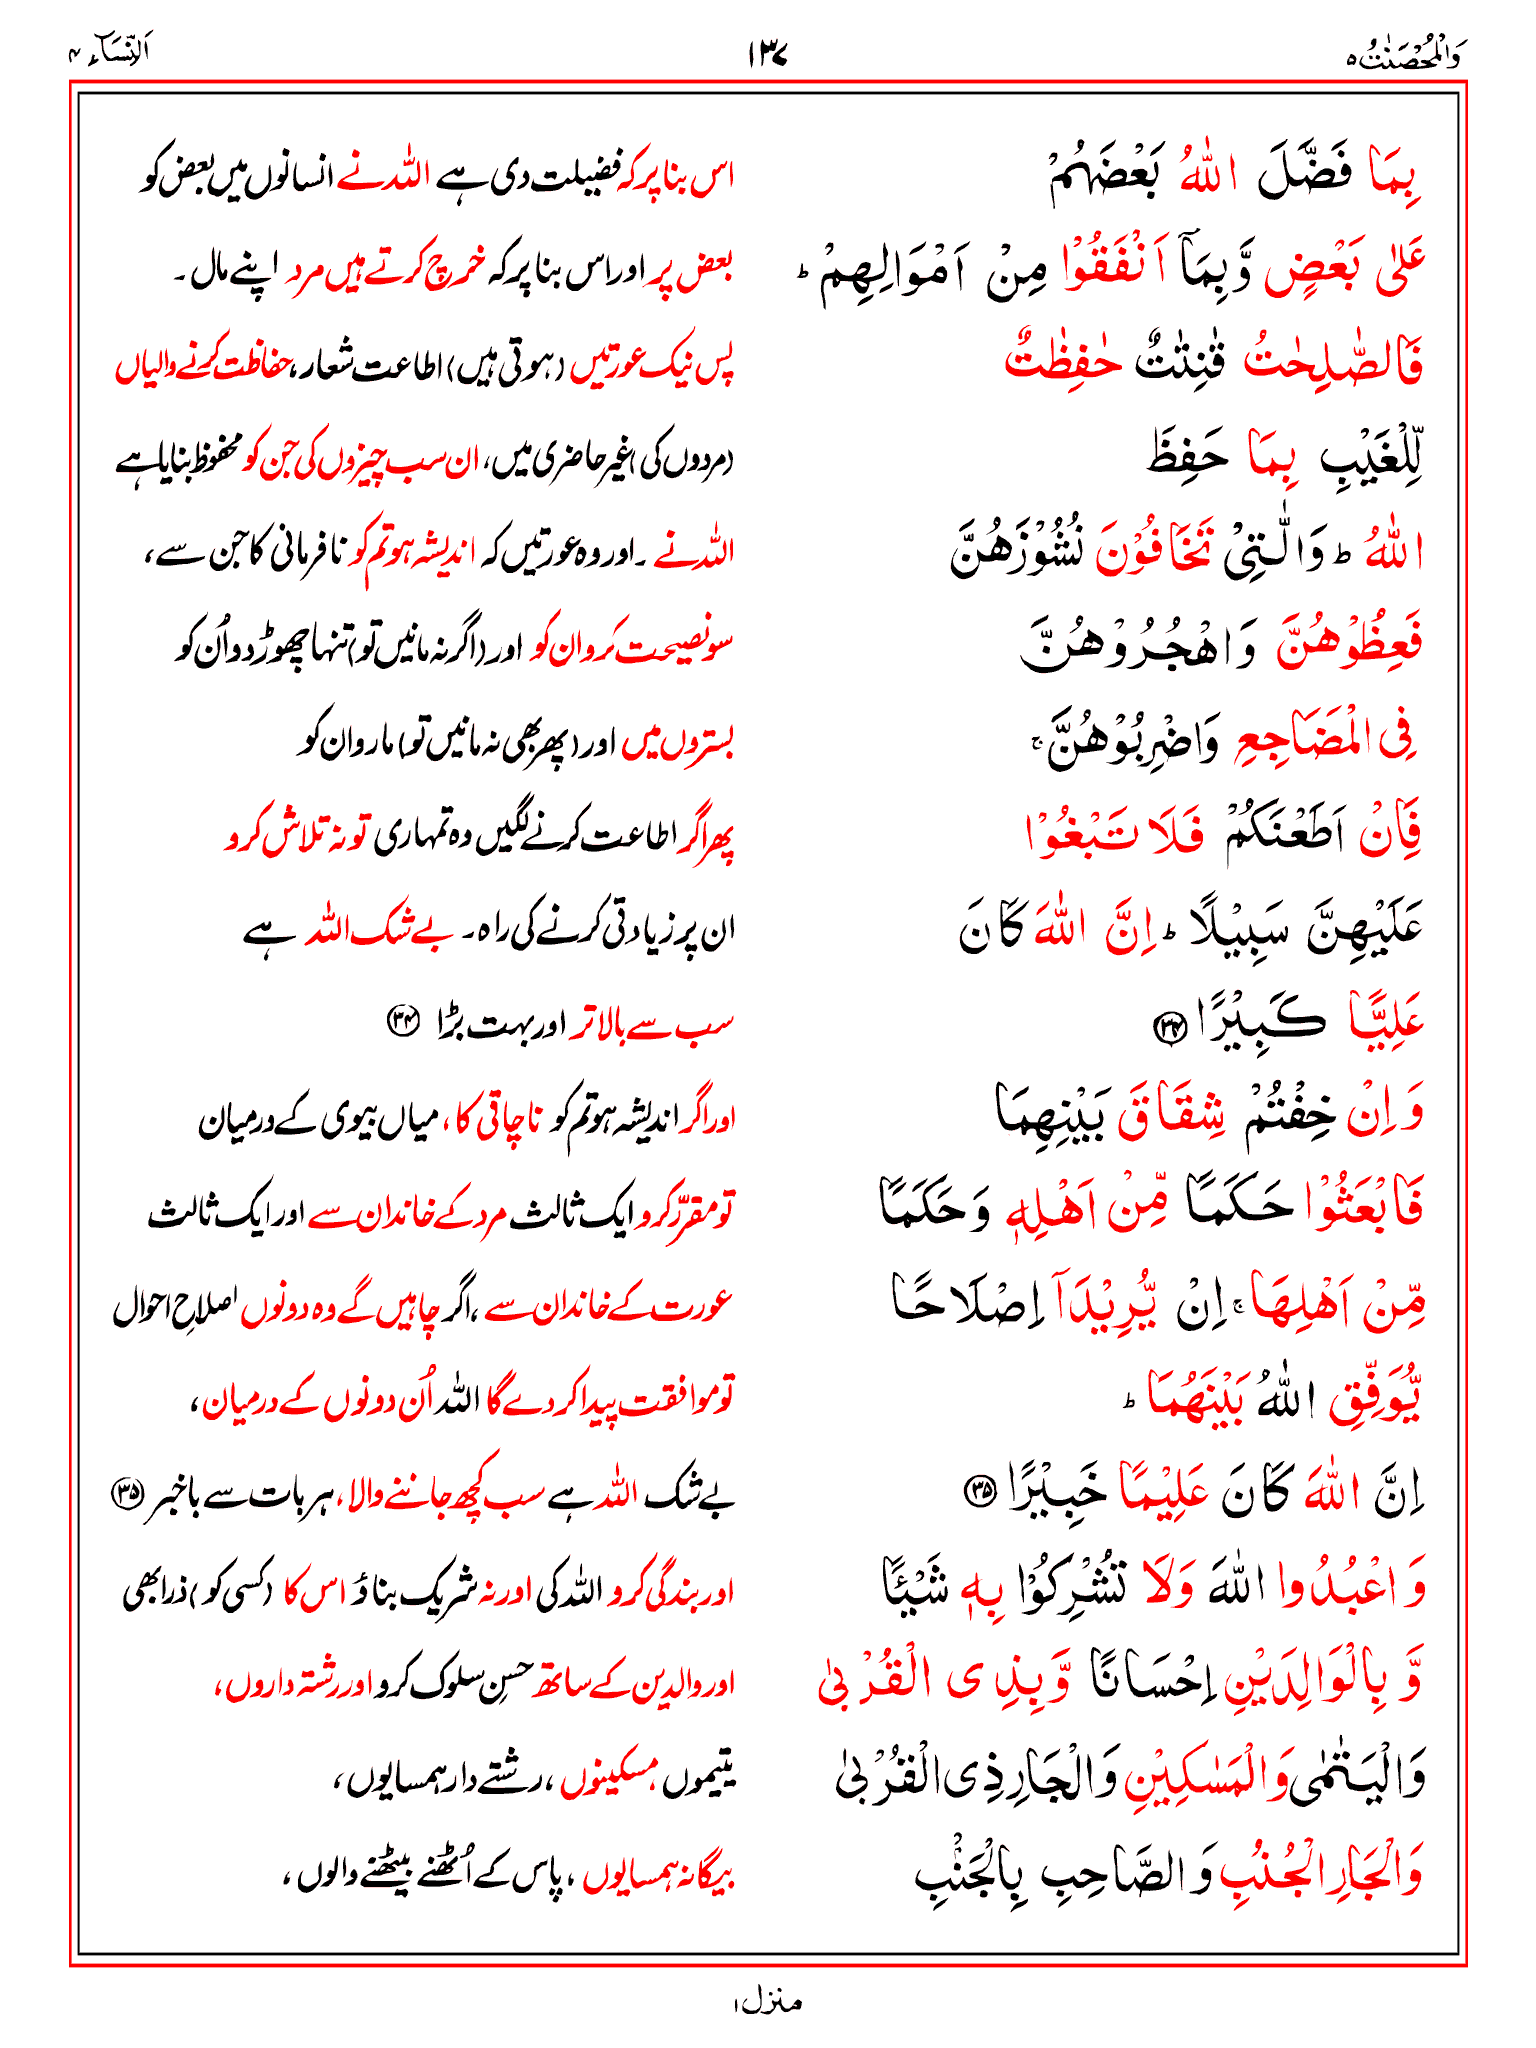 وَالْمُحْصَنٰتُ ۵ ۱۳۷ اَلنِّسَآء ۴
بِمَا فَضَّلَ اللّٰهُ بَعْضَهُمْ اس بنا پر کہ فضیلت دی ہے اللہ نے انسانوں میں بعض کو
عَلٰی بَعْضٍ وَّبِمَاۤ اَنْفَقُوْا مِنْ اَمْوَالِهِمْ ؕ بعض پر اور اس بنا پر کہ خرچ کرتے ہیں مرد اپنے مال ۔
فَالصّٰلِحٰتُ قٰنِتٰتٌ حٰفِظٰتٌ پس نیک عورتیں (ہوتی ہیں) اطاعت شعار، حفاظت کرنے والیاں
لِّلْغَیْبِ بِمَا حَفِظَ (مردوں کی) غیر حاضری میں، ان سب چیزوں کی جن کو محفوظ بنایا ہے
اللّٰهُ ؕ وَالّٰتِیْ تَخَافُوْنَ نُشُوْزَهُنَّ اللہ نے ۔ اور وہ عورتیں کہ اندیشہ ہو تم کو نافرمانی کا جن سے،
فَعِظُوْهُنَّ وَاهْجُرُوْهُنَّ سو نصیحت کرو ان کو اور (اگر نہ مانیں تو) تنہا چھوڑ دو اُن کو
فِی الْمَضَاجِعِ وَاضْرِبُوْهُنَّ ۚ بستروں میں اور (پھر بھی نہ مانیں تو) مارو ان کو
فَاِنْ اَطَعْنَكُمْ فَلَا تَبْغُوْا پھر اگر اطاعت کرنے لگیں وہ تمہاری تو نہ تلاش کرو
عَلَیْهِنَّ سَبِیْلًا ؕ اِنَّ اللّٰهَ كَانَ ان پر زیادتی کرنے کی راہ۔ بے شک اللہ ہے
عَلِیًّا كَبِیْرًا ۳۴ سب سے بالاتر اور بہت بڑا ۳۴
وَ اِنْ خِفْتُمْ شِقَاقَ بَیْنِهِمَا اور اگر اندیشہ ہو تم کو ناچاقی کا، میاں بیوی کے درمیان
فَابْعَثُوْا حَكَمًا مِّنْ اَهْلِهٖ وَحَكَمًا تو مقرّر کرو ایک ثالث مرد کے خاندان سے اور ایک ثالث
مِّنْ اَهْلِهَا ۚ اِنْ یُّرِیْدَاۤ اِصْلَاحًا عورت کے خاندان سے ، اگر چاہیں گے وہ دونوں اصلاحِ احوال
یُّوَفِّقِ اللّٰهُ بَیْنَهُمَا ؕ تو موافقت پیدا کر دے گا اللہ اُن دونوں کے درمیان ،
اِنَّ اللّٰهَ كَانَ عَلِیْمًا خَبِیْرًا ۳۵ بے شک اللہ ہے سب کچھ جاننے والا، ہر بات سے باخبر ۳۵
وَ اعْبُدُوا اللّٰهَ وَلَا تُشْرِكُوْا بِهٖ شَیْـًٔا اور بندگی کرو اللہ کی اور نہ شریک بناؤ اس کا (کسی کو) ذرا بھی
وَّ بِالْوَالِدَیْنِ اِحْسَانًا وَّبِذِی الْقُرْبٰی اور والدین کے ساتھ حسنِ سلوک کرو اور رشتہ داروں،
وَالْیَتٰمٰی وَالْمَسٰكِیْنِ وَالْجَارِ ذِی الْقُرْبٰی یتیموں ،مسکینوں ، رشتے دار ہمسایوں ،
وَالْجَارِ الْجُنُبِ وَالصَّاحِبِ بِالْجَنْۢبِ بیگانہ ہمسایوں ، پاس کے اُٹھنے بیٹھنے والوں ،
منزل ۱